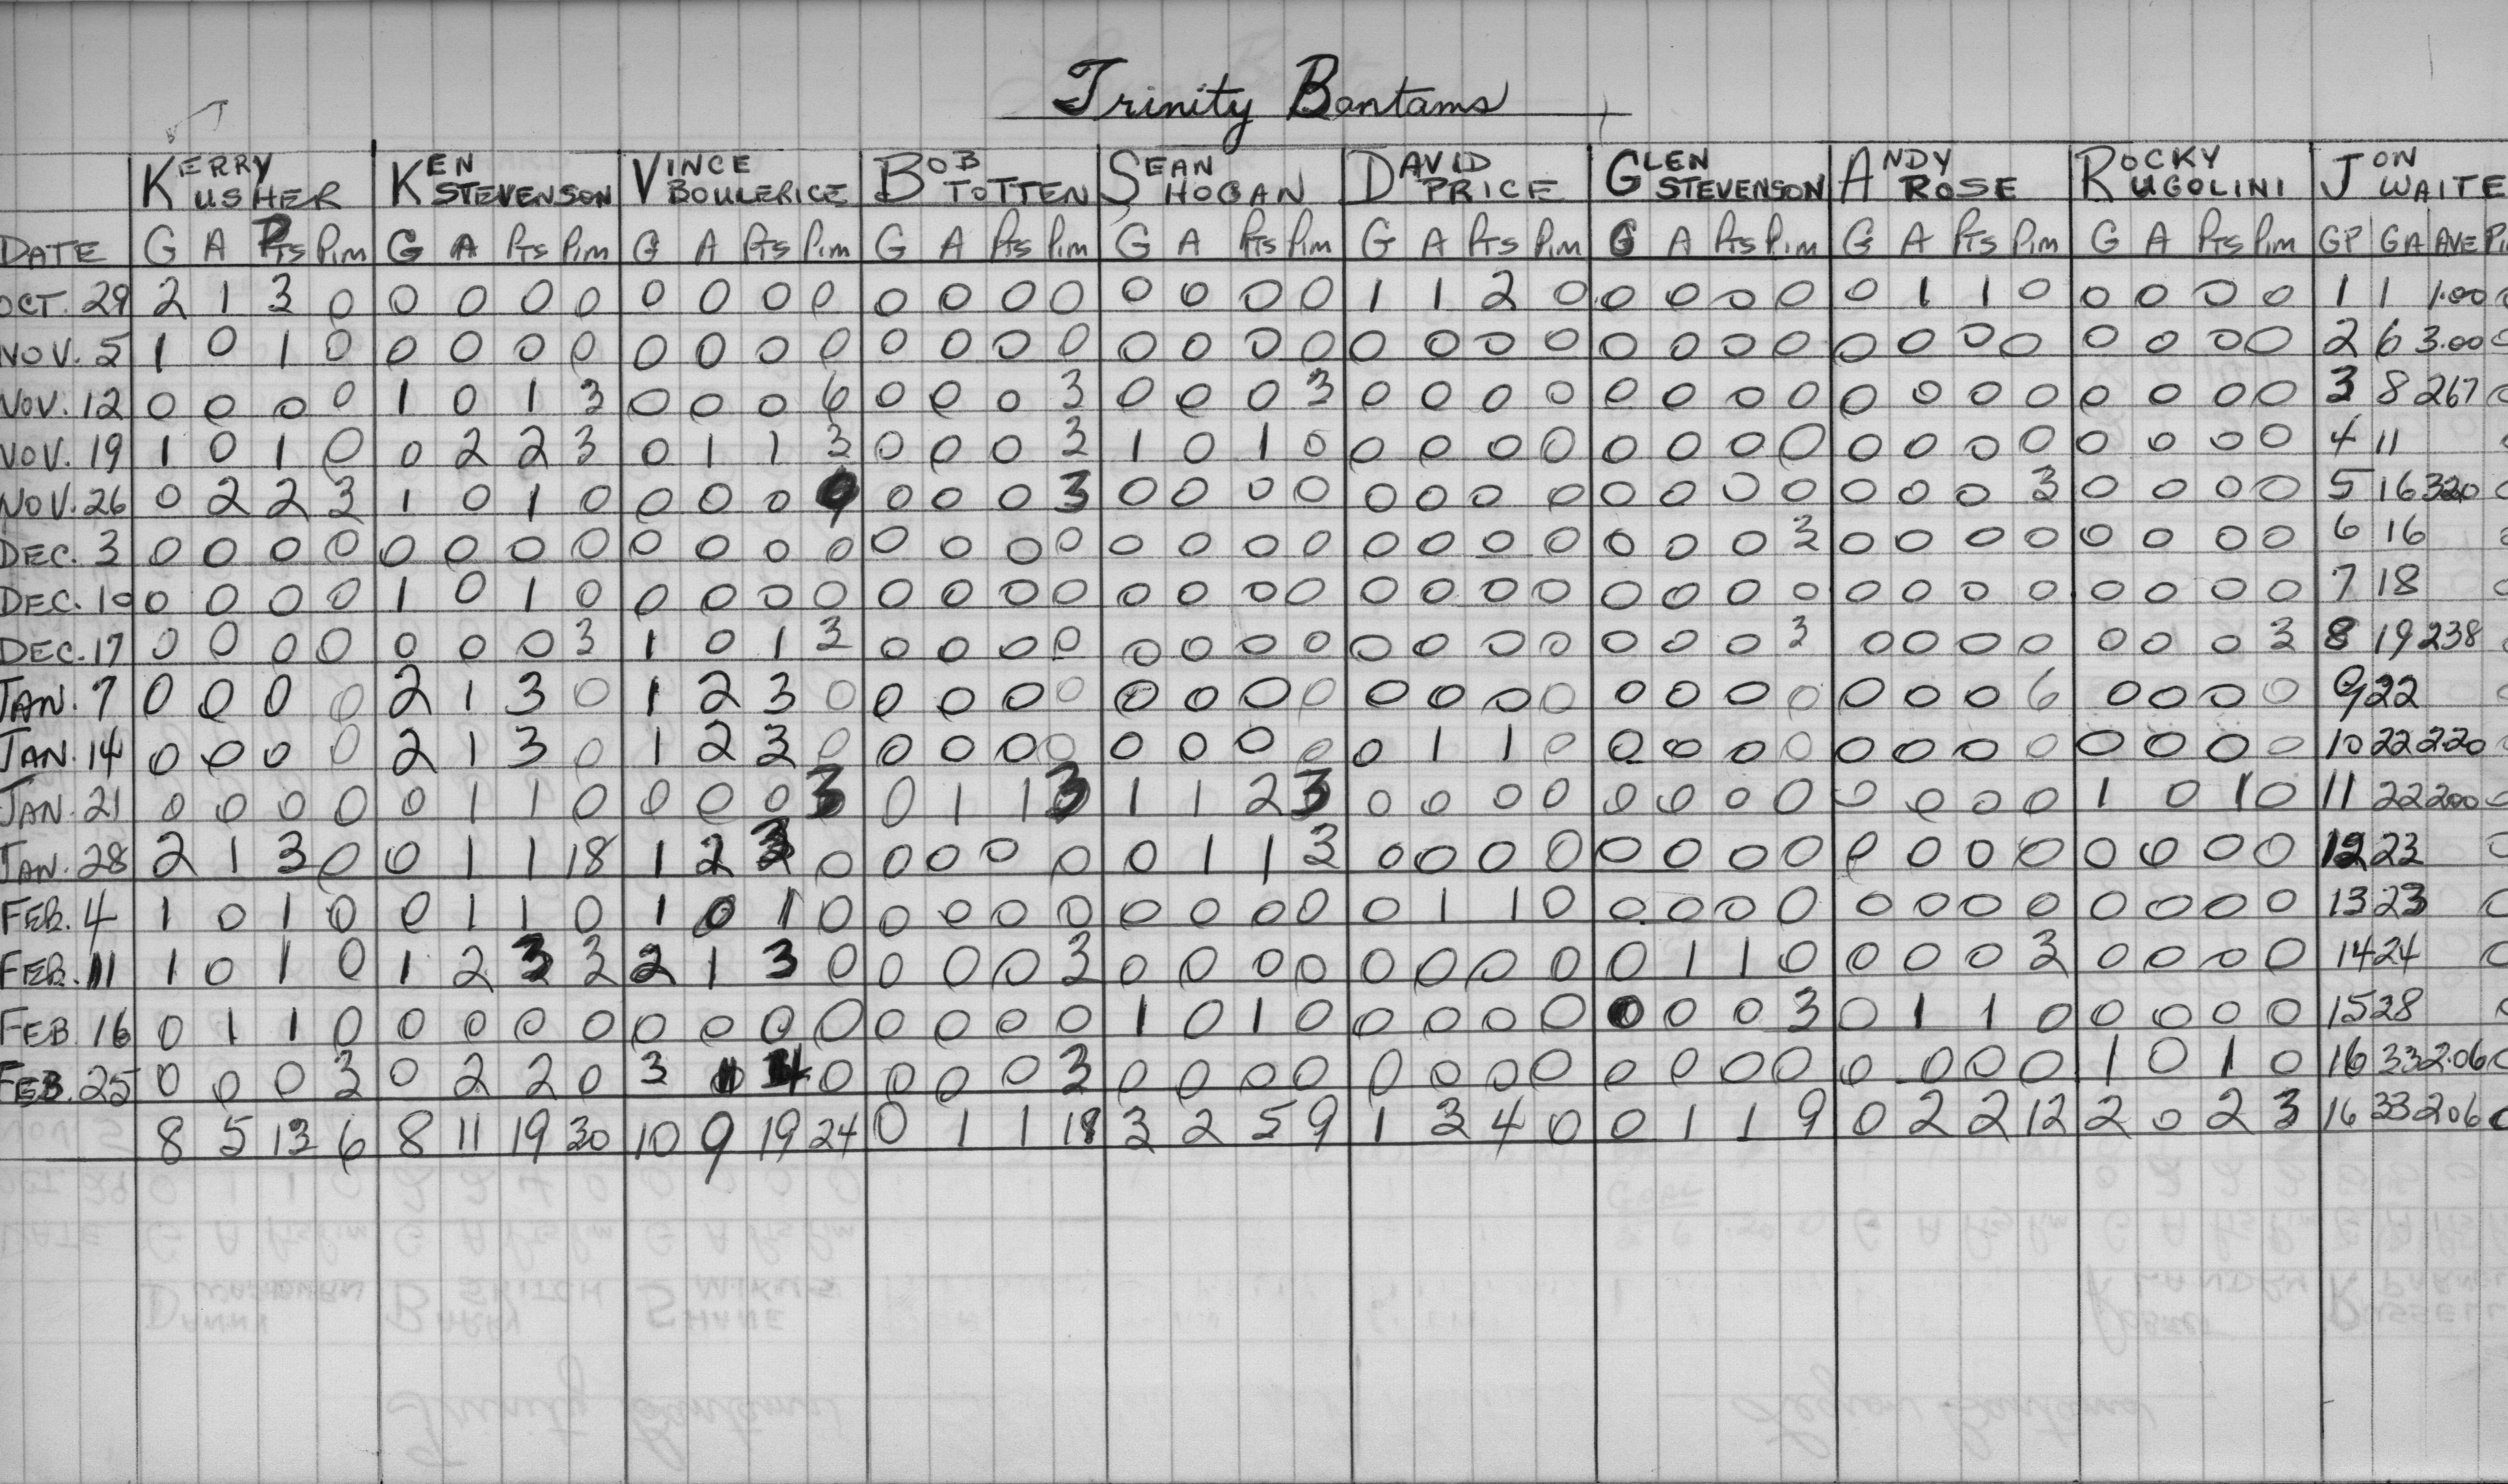 Trinity Bantams
KERRY USHER KEN STEVENSON VINCE BOULERICE BOB TOTTEN SEAN HOGAN DAVID PRICE GLEN STEVENSON ANDY ROSE ROCKY UGOLINI JON WAITE
DATE G A Pts Pim G A Pts Pim G A Pts Pim G A Pts Pim G A Pts Pim G A Pts Pim G A Pts Pim G A Pts Pim G A Pts Pim GP GA AVE Pi
OCT. 29 2 1 3 0 0 0 0 0 0 0 0 0 0 0 0 0 0 0 0 0 1 1 2 0 0 0 0 0 0 1 1 0 0 0 0 0 1 1 1.00 0
NOV. 5 1 0 1 0 0 0 0 0 0 0 0 0 0 0 0 0 0 0 0 0 0 0 0 0 0 0 0 0 0 0 0 0 0 0 0 0 2 6 3.00 0
NOV. 12 0 0 0 0 1 0 1 3 0 0 0 6 0 0 0 3 0 0 0 3 0 0 0 0 0 0 0 0 0 0 0 0 0 0 0 0 3 8 267 0
NOV. 19 1 0 1 0 0 2 2 3 0 1 1 3 0 0 0 3 1 0 1 0 0 0 0 0 0 0 0 0 0 0 0 0 0 0 0 0 4 11 0
NOV. 26 0 2 2 3 1 0 1 0 0 0 0 9 0 0 0 3 0 0 0 0 0 0 0 0 0 0 0 0 0 0 0 3 0 0 0 0 5 16 320 0
DEC. 3 0 0 0 0 0 0 0 0 0 0 0 0 0 0 0 0 0 0 0 0 0 0 0 0 0 0 0 3 0 0 0 0 0 0 0 0 6 16 0
DEC. 10 0 0 0 0 1 0 1 0 0 0 0 0 0 0 0 0 0 0 0 0 0 0 0 0 0 0 0 0 0 0 0 0 0 0 0 0 7 18 0
DEC. 17 0 0 0 0 0 0 0 3 1 0 1 3 0 0 0 0 0 0 0 0 0 0 0 0 0 0 0 3 0 0 0 0 0 0 0 3 8 19 238 0
JAN. 7 0 0 0 0 2 1 3 0 1 2 3 0 0 0 0 0 0 0 0 0 0 0 0 0 0 0 0 0 0 0 0 6 0 0 0 0 9 22 0
JAN. 14 0 0 0 0 2 1 3 0 1 2 3 0 0 0 0 0 0 0 0 0 0 1 1 0 0 0 0 0 0 0 0 0 0 0 0 0 10 22 2.20 0
JAN. 21 0 0 0 0 0 1 1 0 0 0 0 3 0 1 1 3 1 1 2 3 0 0 0 0 0 0 0 0 0 0 0 0 1 0 1 0 11 22 200 0
JAN. 28 2 1 3 0 0 1 1 18 1 2 3 0 0 0 0 0 0 1 1 3 0 0 0 0 0 0 0 0 0 0 0 0 0 0 0 0 12 23 0
FEB. 4 1 0 1 0 0 1 1 0 1 0 1 0 0 0 0 0 0 0 0 0 0 1 1 0 0 0 0 0 0 0 0 0 0 0 0 0 13 23 0
FEB. 11 1 0 1 0 1 2 3 3 2 1 3 0 0 0 0 3 0 0 0 0 0 0 0 0 0 1 1 0 0 0 0 3 0 0 0 0 14 24 0
FEB 16 0 1 1 0 0 0 0 0 0 0 0 0 0 0 0 0 1 0 1 0 0 0 0 0 0 0 0 3 0 1 1 0 0 0 0 0 15 28 0
FEB. 25 0 0 0 3 0 2 2 0 3 1 4 0 0 0 0 3 0 0 0 0 0 0 0 0 0 0 0 0 0 0 0 0 1 0 1 0 16 33 2.06 0
8 5 13 6 8 11 19 30 10 9 19 24 0 1 1 18 3 2 5 9 1 3 4 0 0 1 1 9 0 2 2 12 2 0 2 3 16 33 206 0